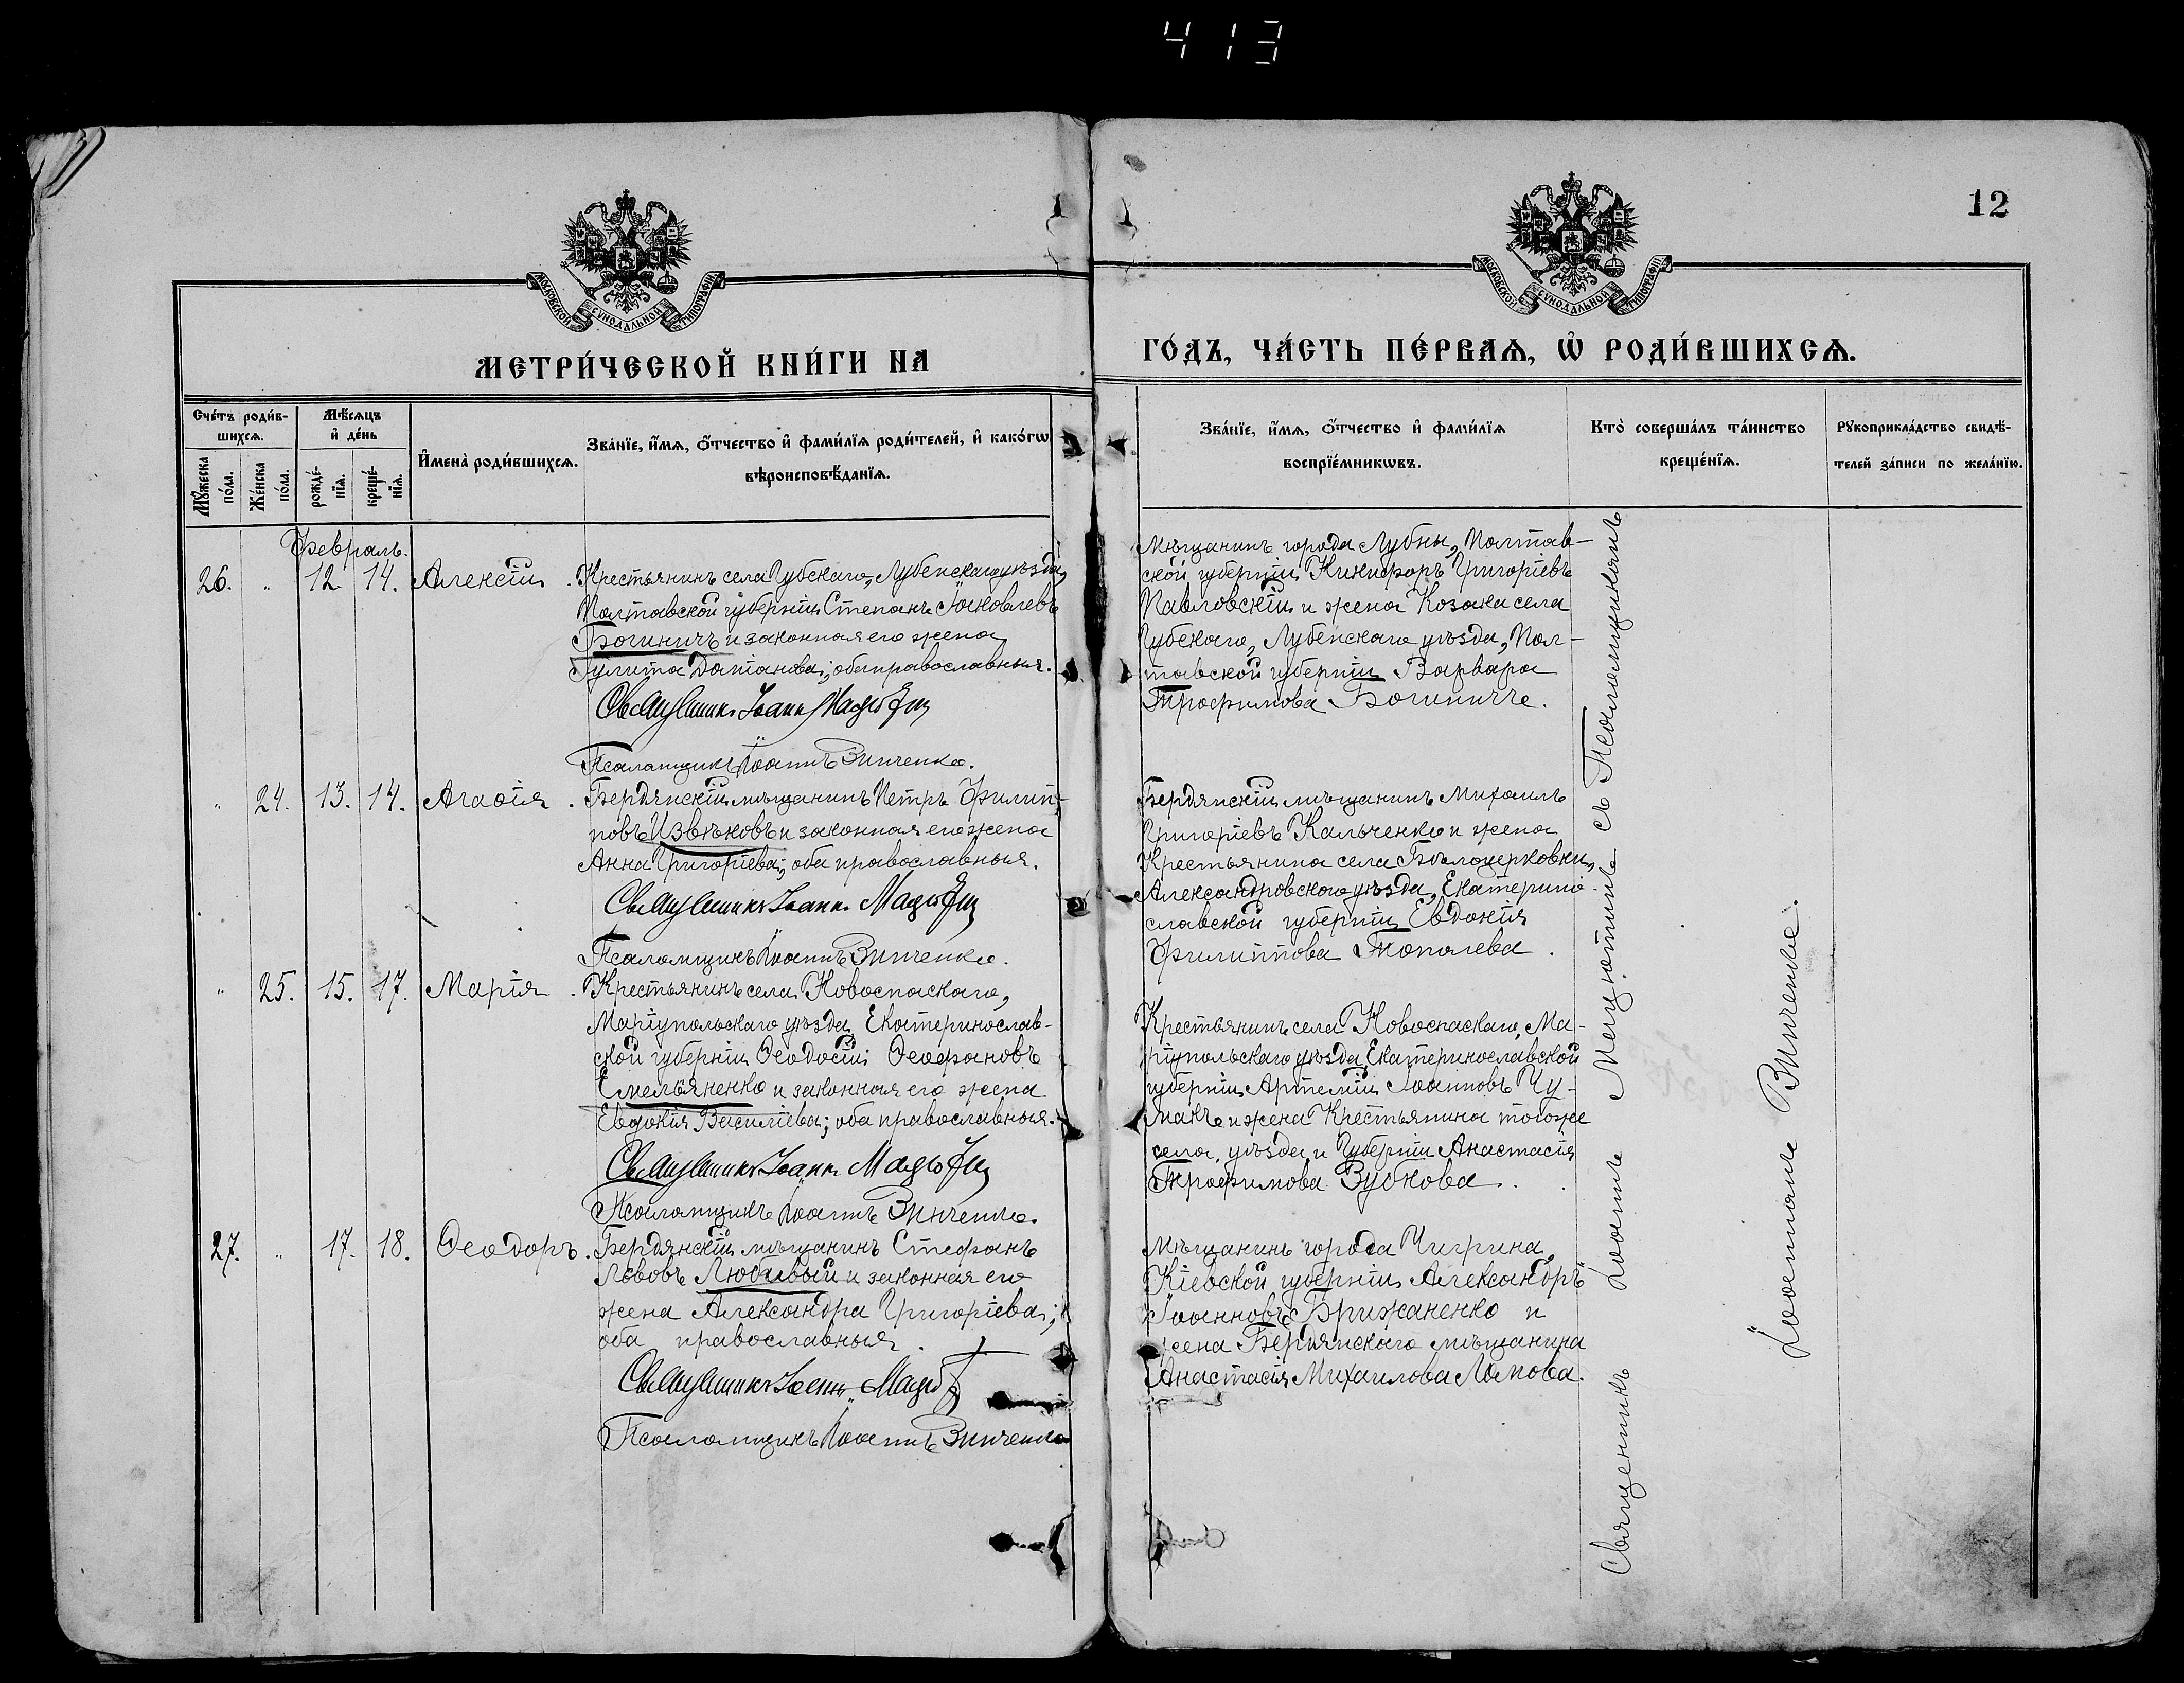 413
12
МОСКОВСКОЙ СѴНОДАЛЬНОЙ ТИПОГРАФІИ
МОСКОВСКОЙ СѴНОДАЛЬНОЙ ТИПОГРАФІИ
МЕТРИ́ЧЕСКОЙ КНИ́ГИ НА
ГО́ДЪ, ЧА́СТЬ ПЕ́РВАѦ, Ѡ РОДИ́ВШИХСѦ.
Сче́тъ роди́в-
шихсѧ.
Мꙋ́жеска
по́ла.
Же́нска
по́ла.
Мѣ́сѧцъ
и҆ де́нь
рожде́-
нїѧ.
креще́-
нїѧ.
И҆мена̀ роди́вшихсѧ.
Зва́нїе, и҆́мѧ, ѻ҆́тчество и҆ фами́лїѧ роди́телей, и҆ како́гѡ
вѣроисповѣ́данїѧ.
Зва́нїе, и҆́мѧ, ѻ҆́тчество и҆ фами́лїѧ
воспрїе́мникѡвъ.
Кто̀ соверша́лъ та́инство
креще́нїѧ.
Рꙋкоприкла́дство свидѣ́-
телей за́писи по жела́нїю.
Февраль.
26. " 12 14. Алексій.
Крестьянинъ села Губскаго, Лубенскаго уѣзда,
Полтавской губерніи Степанъ Іаковлевъ
Богиничъ и законная его жена
Іулита Даміанова; оба православныя.
Священникъ Іоаннъ
Псаломщикъ Іоаннъ Винченко.
Мѣщанинъ города Лубны, Полтав-
ской губерніи Никифоръ Григоріевъ
Павловскій и жена Козака села
Губскаго, Лубенскаго уѣзда, Пол-
тавской губерніи Варвара
Трофимова Богиничче.
" 24. 13. 14. Агафія.
Бердянскій мѣщанинъ Петръ Филип-
повъ Извѣковъ и законная его жена
Анна Григоріева; оба православныя.
Священникъ Іоаннъ
Псаломщикъ Іоаннъ Винченко.
Бердянскій мѣщанинъ Михаилъ
Григоріевъ Кальченко и жена
Крестьянина села Бѣлоцерковки,
Александровскаго уѣзда, Екатерино-
славской губерніи Евдокія
Филиппова Тополева.
" 25. 15. 17. Марія.
Крестьянинъ села Новоспаскаго,
Маріупольскаго уѣзда Екатеринослав-
ской губерніи Ѳеодосій Ѳеофановъ
Емельяненко и законная его жена
Евдокія Василіева; оба православныя.
Священникъ Іоаннъ
Псаломщикъ Іоаннъ Винченко.
Крестьянинъ села Новоспаскаго, Ма-
ріупольскаго уѣзда Екатеринославской
губерніи Артемій Іоанновъ Чу-
макъ и жена Крестьянина тогоже
села, уѣзда и Губерніи Анастасія
Трофимова Зубкова.
27. " 17. 18. Ѳеодоръ.
Бердянскій мѣщанинъ Стефанъ
Львовъ Любивый и законная его
жена Александра Григоріева;
оба православныя.
Священникъ Іоаннъ
Псаломщикъ Іоаннъ Винченко
Мѣщанинъ города Чигрина,
Кіевской губерніи Александръ
Іоанновъ Брижаненко и
жена Бердянскаго мѣщанина
Анастасія Михаилова
Священникъ Іоаннъ съ Псаломщикомъ
Іоанномъ Винченко.